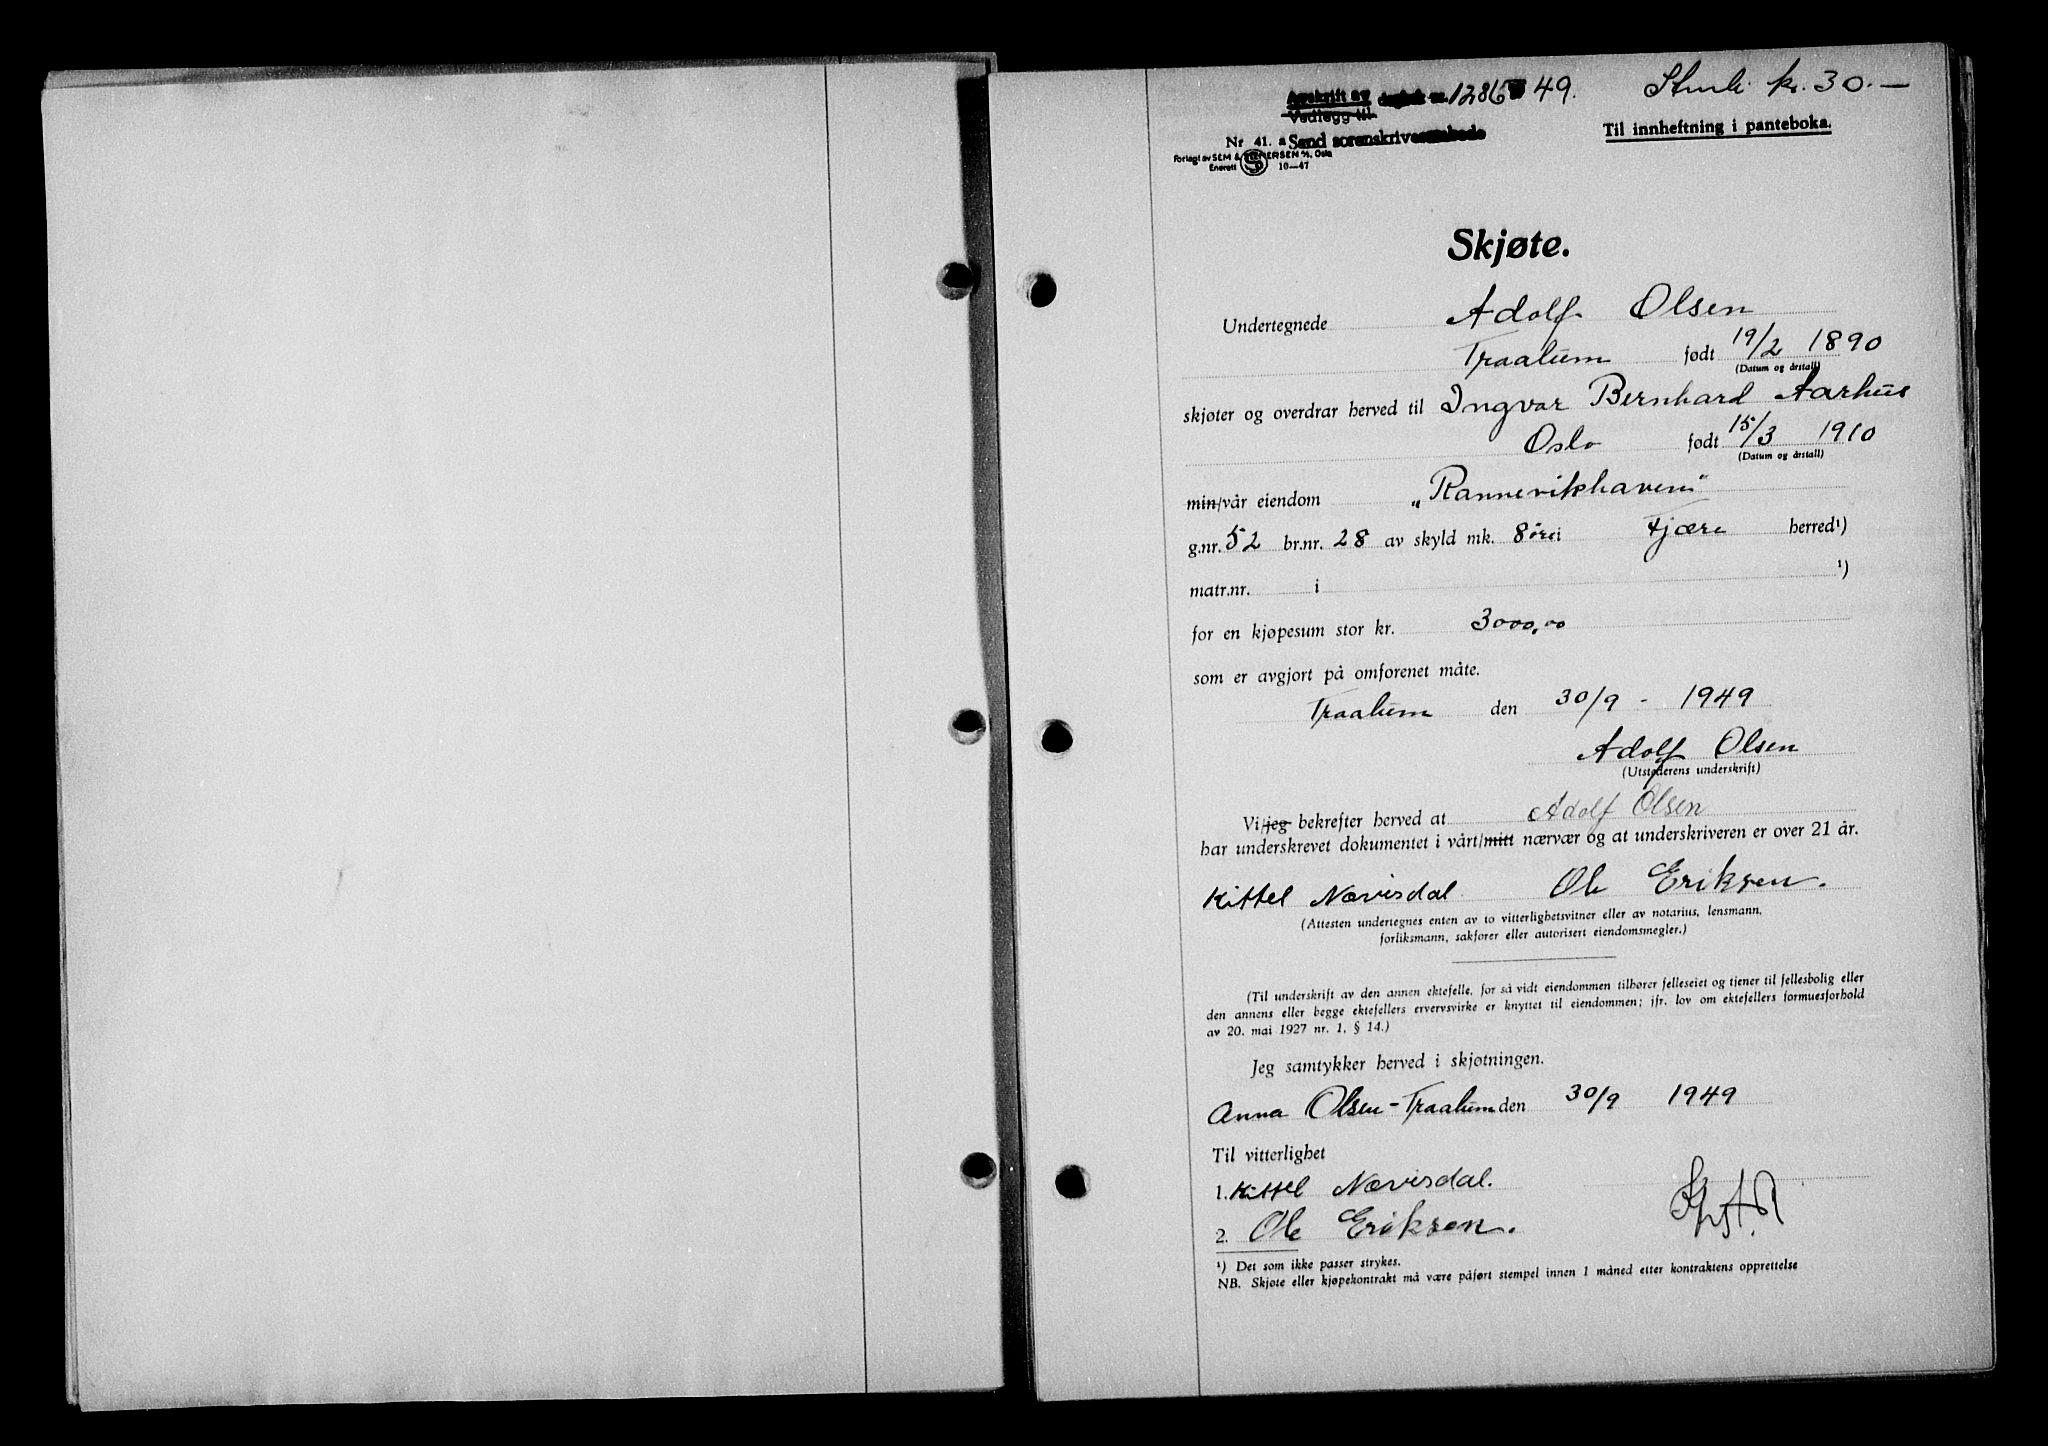 Avskrift av dagbok nr. 1286 49. Stuli kr. 30.—
Vedlegg til
Til innheftning i panteboka.
Nr 41. a Sand sorenskriverembede
Forlagt av SEM & STENERSEN A/S, Oslo
Enerett 10—47
Skjøte.
Undertegnede Adolf Olsen
Traalum født 19/2 1890
(Datum og årstall)
skjøter og overdrar herved til Ingvar Bernhard Aarhus
Oslo født 15/3 1910
(Datum og årstall)
min/vår eiendom „Rannevikhaven"
g.nr. 52 br.nr. 28 av skyld mk. 8 øre i Fjære herred¹)
matr.nr. i ¹)
for en kjøpesum stor kr. 3000,00
som er avgjort på omforenet måte.
Traalum den 30/9 - 1949
Adolf Olsen
(Utstederens underskrift)
Vi/jeg bekrefter herved at Adolf Olsen
har underskrevet dokumentet i vårt/mitt nærvær og at underskriveren er over 21 år.
Kittel Nævisdal Ole Eriksen.
(Attesten undertegnes enten av to vitterlighetsvitner eller av notarius, lensmann,
forliksmann, sakfører eller autorisert eiendomsmegler.)
(Til underskrift av den annen ektefelle, for så vidt eiendommen tilhører felleseiet og tjener til fellesbolig eller
den annens eller begge ektefellers ervervsvirke er knyttet til eiendommen; jfr. lov om ektefellers formuesforhold
av 20. mai 1927 nr. 1, § 14.)
Jeg samtykker herved i skjøtningen.
Anna Olsen - Traalum den 30/9 1949
Til vitterlighet
1. Kittel Nævisdal.
2. Ole Eriksen.
¹) Det som ikke passer strykes.
NB. Skjøte eller kjøpekontrakt må være påført stempel innen 1 måned etter kontraktens opprettelse